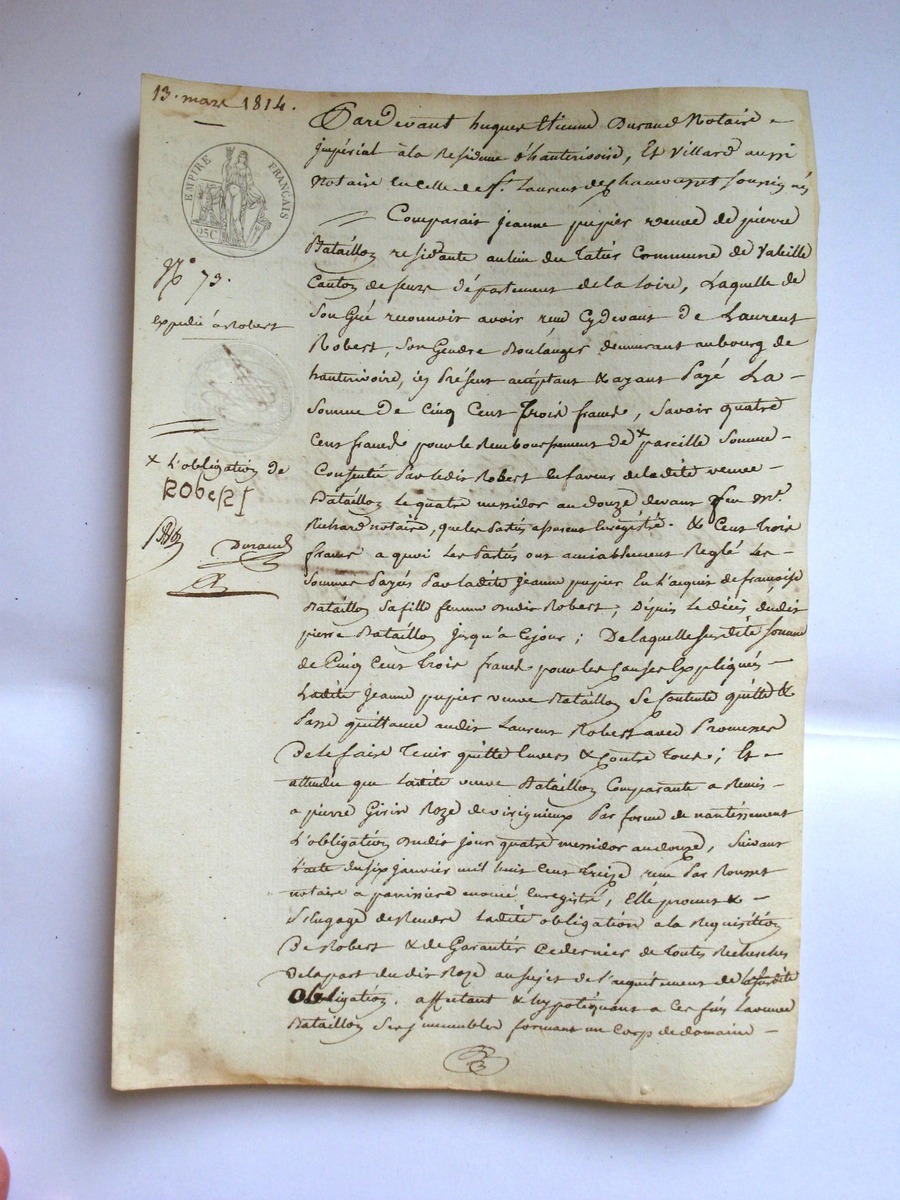 13. mars 1814.
EMPIRE FRANÇAIS
25C
N.° 73.
Expedié à Robert
x L'obligation de
Robert
Durand
Pardevant hugues Etienne Durand Notaire
Impérial à la Residence d'hauterivoire, Et Villard aussi
Notaire en celle de St. Laurent de Chamousset soussignés
Comparait Jeanne pupier veuve de pierre
Bataillon residante au lieu du Tatier Commune de Valeille
Canton de feurs département de la Loire, Laquelle de
Son Gré reconnoit avoir reçu cydevant de Laurent
Robert, Son Gendre Boulanger demeurant au bourg de
hauterivoire, icy Présent acceptant & ayant Payé La
Somme De Cinq Cent Trois francs, Savoir quatre
Cent francs pour le Remboursement de x pareille Somme
Consentie Par ledit Robert en faveur de ladite veuve
Bataillon Le quatre messidor an douze devant feu Mr.
Richard notaire, que les Parties assurent Enregistré. & Cent Trois
francs a quoi Les Parties ont amiablement Reglé Les
Sommes Payés Par ladite Jeanne pupier En L'acquis de françoise
Bataillon Sa fille femme dudit Robert; Depuis Le décès dudit
pierre Bataillon Jusqu'à Cejour; De laquelle Susdite Somme
de Cinq Cent Trois francs pour les Causes Expliqués
Ladite Jeanne pupier veuve Bataillon Se Contente quitte &
Passe quittance audit Laurent Robert avec Promesse
De le faire Tenir quitte Envers & Contre Tous; Et
attendu que Ladite veuve Bataillon Comparante a Remis
a pierre Girin Roze de virigneux Par forme de nantissement
L'obligation dudit jour quatre messidor an douze, Suivant
L'acte du Six Janvier mil huit Cent Treize reçu Par Rousset
notaire a panissiere Enregistré, Elle promet &
S'Engage de Rendre Ladite obligation à la Requisition
De Robert & de Garantir Ce dernier de Toutes Recherches
De la part dudit Roze au Sujet de l'acquitement de la Susdite
Obligation. affectant & hypotéquant a Ces fins La veuve
Bataillon Ses immeubles formant un Corp de domaine